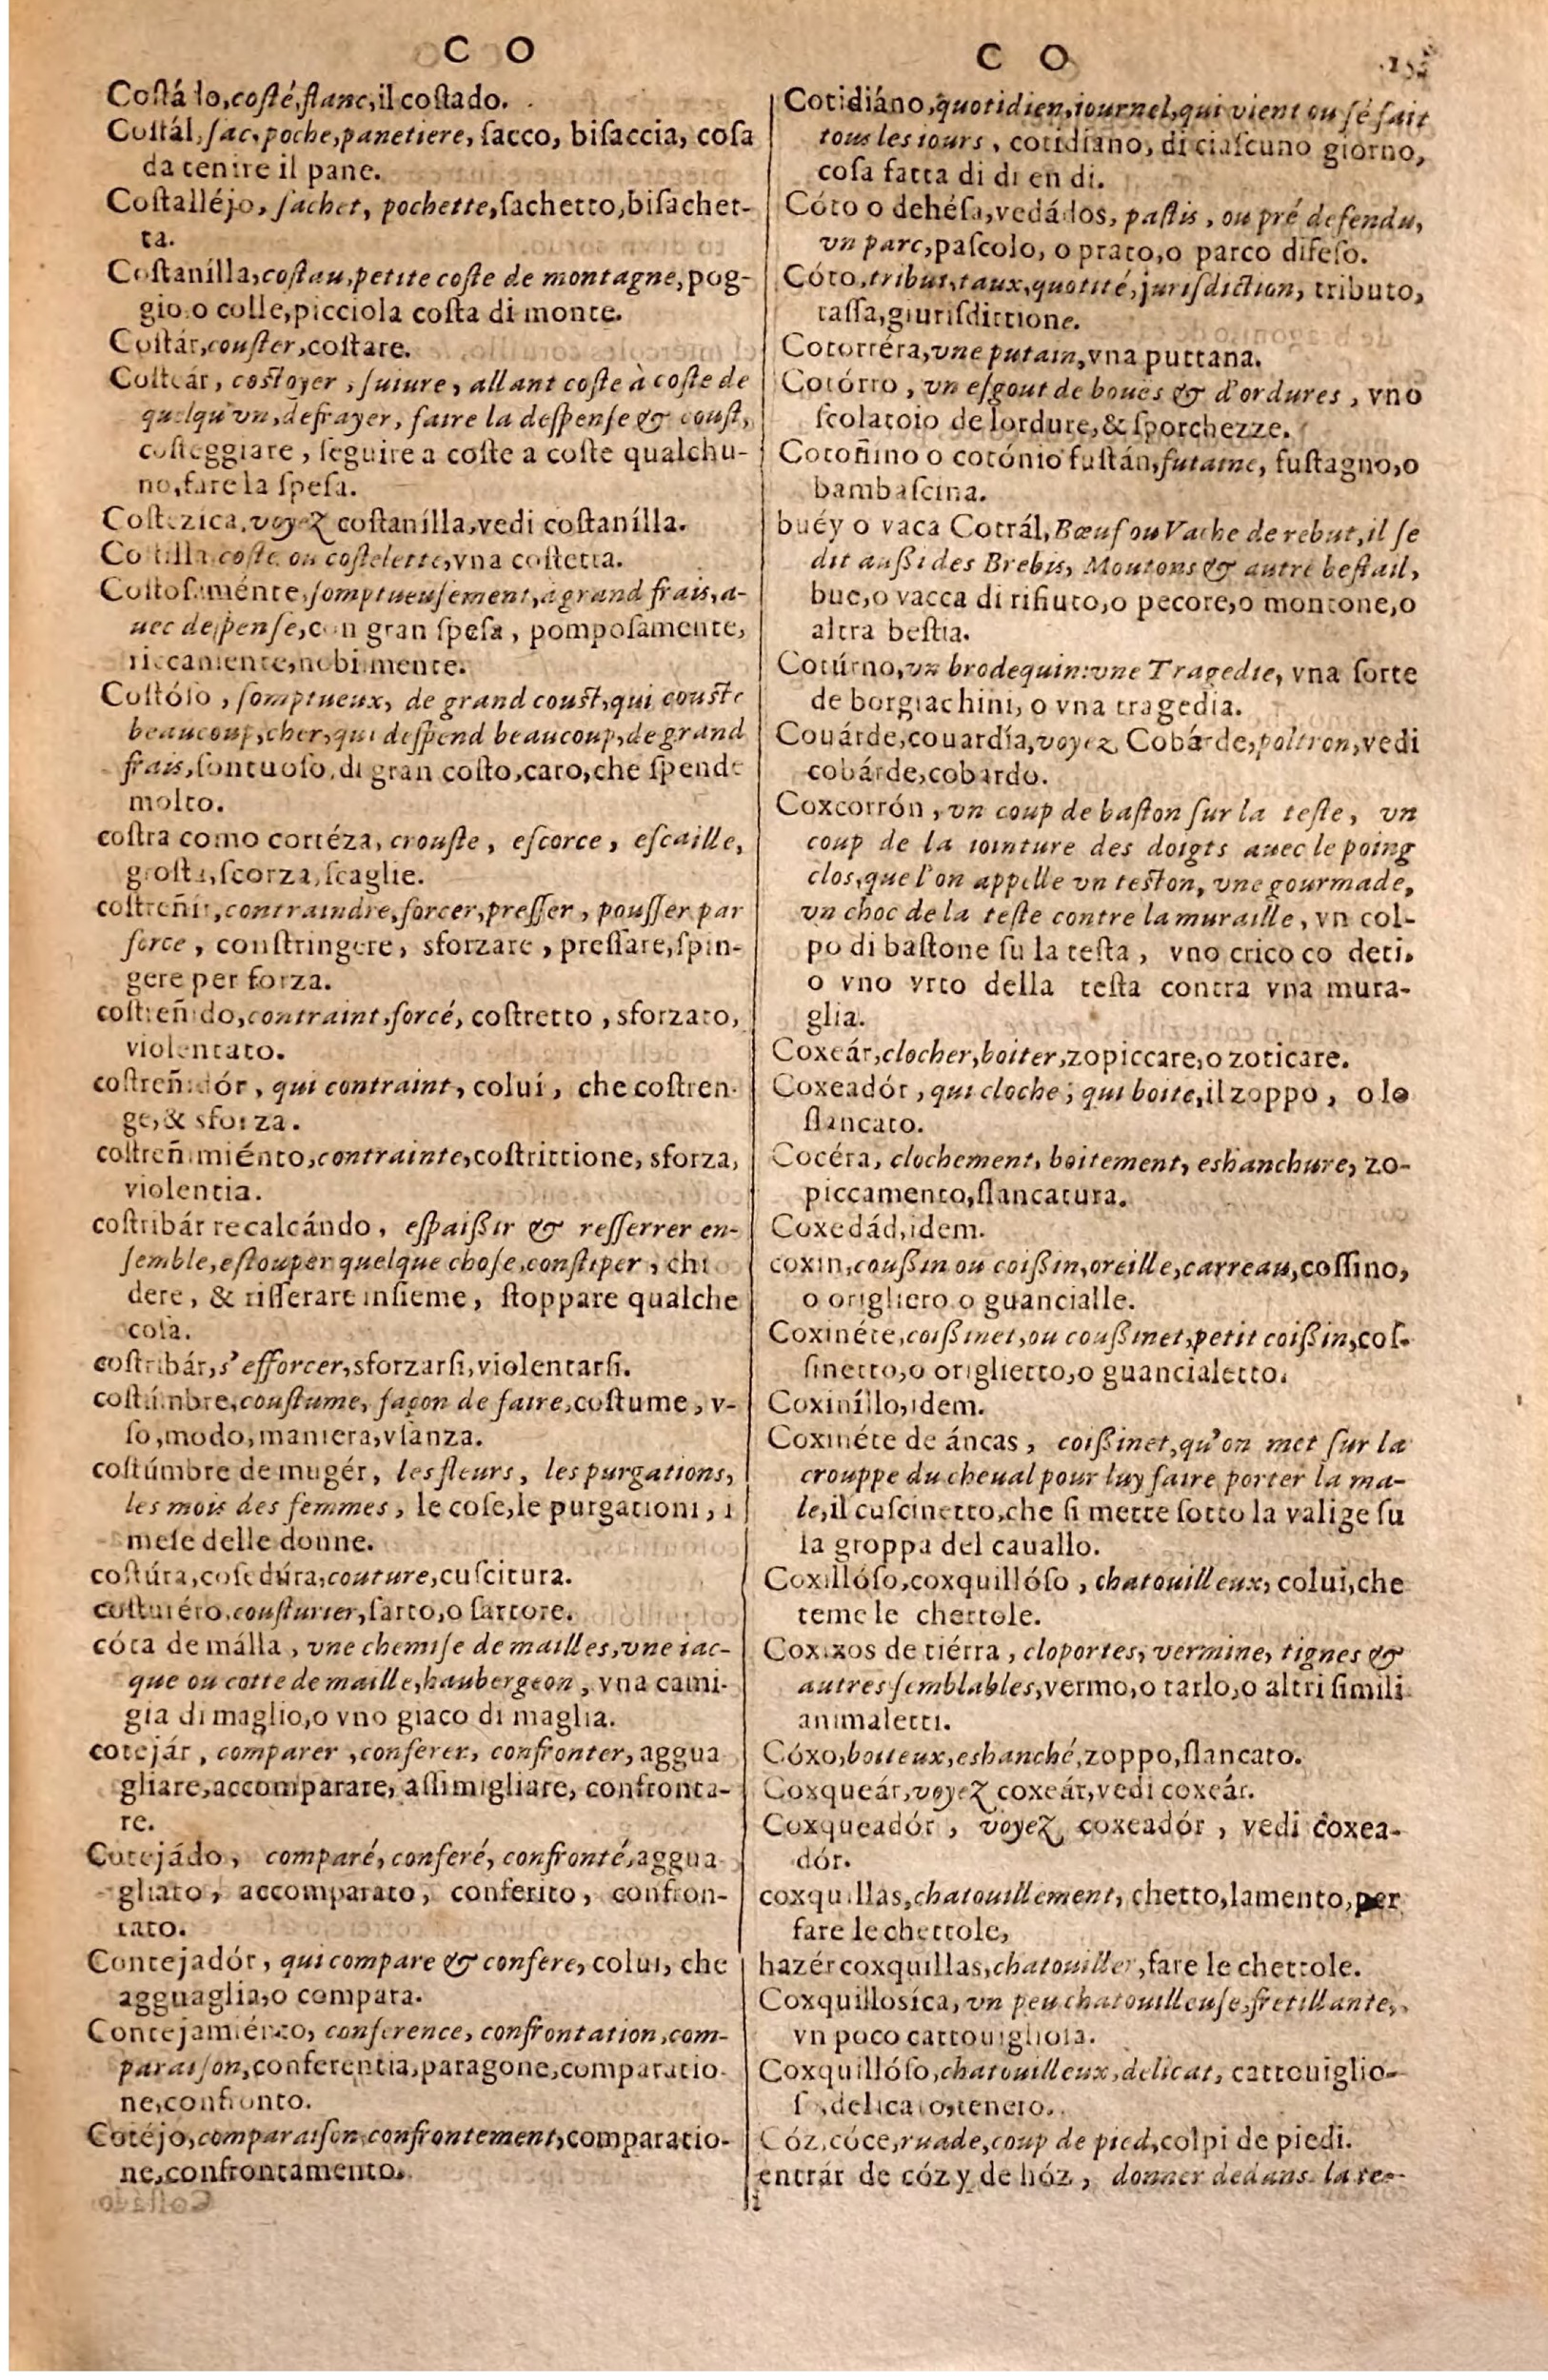 C O
Costádo, costé, flanc, il costado.
Costál, sac, poche, panetiere, sacco, bisaccia, cosa
da tenire il pane.
Costalléjo, sachet, pochette, sachetto, bisachet-
ta.
Costanílla, costau, petite coste de montagne, pog-
gio o colle, picciola costa di monte.
Costár, couster, costare.
Costeár, costoyer, suiure, allant coste à coste de
quelqu'vn, defrayer, faire la despense & coust,
costeggiare, seguire a coste a coste qualchu-
no, fare la spesa.
Costezica, voyez costanílla, vedi costanílla.
Costilla coste ou costelette, vna costetta.
Costosaménte, somptueusement, a grand frais, a-
uec despense, con gran spesa, pomposamente,
riccamente, nobilmente.
Costóso, somptueux, de grand coust, qui couste
beaucoup, cher, qui despend beaucoup, de grand
frais, sontuoso, di gran costo, caro, che spende
molto.
costra como cortéza, crouste, escorce, escaille,
grosta, scorza, scaglie.
costreñir, contraindre, forcer, presser, pousser par
force, constringere, sforzare, pressare, spin-
gere per forza.
costreñido, contraint, forcé, costretto, sforzato,
violentato.
costreñidór, qui contraint, colui, che costren-
ge, & sforza.
costreñimiénto, contrainte, costrittione, sforza,
violentia.
costribár recalcándo, espaißir & resserrer en-
semble, estouper quelque chose, constiper, chi
dere, & risserare insieme, stoppare qualche
cosa.
costribár, s'efforcer, sforzarsi, violentarsi.
costúmbre, coustume, façon de faire, costume, v-
so, modo, maniera, vsanza.
costúmbre de mugér, les fleurs, les purgations,
les mois des femmes, le cose, le purgationi, i
mese delle donne.
costúra, cosedúra, couture, cuscitura.
costuréro, cousturier, sarto, o sartore.
cóta de málla, vne chemise de mailles, vne iac-
que ou cotte de maille, haubergeon, vna cami-
gia di maglio, o vno giaco di maglia.
cotejár, comparer, conferer, confronter, aggua
gliare, accomparare, assimigliare, confronta-
re.
Cotejádo, comparé, conferé, confronté, aggua
gliato, accomparato, conferito, confron-
tato.
Contejadór, qui compare & confere, colui, che
agguaglia, o compara.
Contejamiénto, conference, confrontation, com-
paraison, conferentia, paragone, comparatio-
ne, confronto.
Cotéjo, comparaison confrontement, comparatio-
ne, confrontamento.
C O
Cotidiáno, quotidien, iournel, qui vient ou se fait
tous les iours, cotidiano, di ciascuno giorno,
cosa fatta di di en di.
Cóto o dehésa, vedádos, pastis, ou pré defendu,
vn parc, pascolo, o prato, o parco difeso.
Cóto, tribut, taux, quotité, jurisdiction, tributo,
tassa, giurisdittione.
Cotorréra, vne putain, vna puttana.
Cotórro, vn esgout de boues & d'ordures, vno
scolatoio de lordure, & sporchezze.
Cotoñino o cotónio fustán, futaine, fustagno, o
bambascina.
buéy o vaca Cotrál, Bœuf ou Vache de rebut, il se
dit außi des Brebis, Moutons & autre bestail,
bue, o vacca di rifiuto, o pecore, o montone, o
altra bestia.
Cotúrno, vn brodequin: vne Tragedie, vna sorte
de borgiachini, o vna tragedia.
Couárde, couardía, voyez Cobárde, poltron, vedi
cobárde, cobardo.
Coxcorrón, vn coup de baston sur la teste, vn
coup de la iointure des doigts auec le poing
clos, que l'on appelle vn teston, vne gourmade,
vn choc de la teste contre la muraille, vn col-
po di bastone su la testa, vno crico co deti.
o vno vrto della testa contra vna mura-
glia.
Coxeár, clocher, boiter, zopiccare, o zoticare.
Coxeadór, qui cloche; qui boite, il zoppo, o lo
slancato.
Cocéra, clochement, boitement, eshanchure, zo-
piccamento, slancatura.
Coxedád, idem.
coxin, coußin ou coißin, oreille, carreau, cossino,
o origliero o guancialle.
Coxinéte, coißinet, ou coußinet, petit coißin, cos-
sinetto, o origlietto, o guancialetto.
Coxiníllo, idem.
Coxinéte de áncas, coißinet, qu'on met sur la
crouppe du cheual pour luy faire porter la ma-
le, il cuscinetto, che si mette sotto la valige su
la groppa del cauallo.
Coxillóso, coxquillóso, chatouilleux, colui, che
teme le chettole.
Coxixos de tiérra, cloportes, vermine, tignes &
autres semblables, vermo, o tarlo, o altri simili
animaletti.
Cóxo, boiteux, eshanché, zoppo, slancato.
Coxqueár, voyez coxeár, vedi coxeár.
Coxqueadór, voyez coxeadór, vedi coxea-
dór.
coxquillas, chatouillement, chetto, lamento, per
fare le chettole,
hazér coxquillas, chatouiller, fare le chettole.
Coxquillosica, vn peu chatouilleuse, fretillante,
vn poco cattouigliosa.
Coxquillóso, chatouilleux, delicat, cattouiglio-
so, delicato, tenero.
Cóz, cóce, ruade, coup de pied, colpi de piedi.
entrár de cóz y de hóz, donner dedans la te-